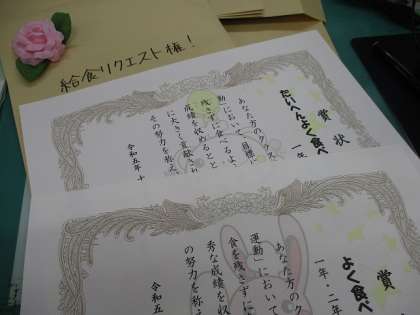 給食リクエスト権！
賞状
たいへんよく食べ
一年
あなた方のクラス
動」において、目標
残さずに食べるよ
成績を収めるとと
に大きく貢献され
その努力を称え
令和五年十
賞
よく食べ
一年・二年
あなた方の
運動」において
食を残さずに
秀な成績を収
の努力を称え
令和五